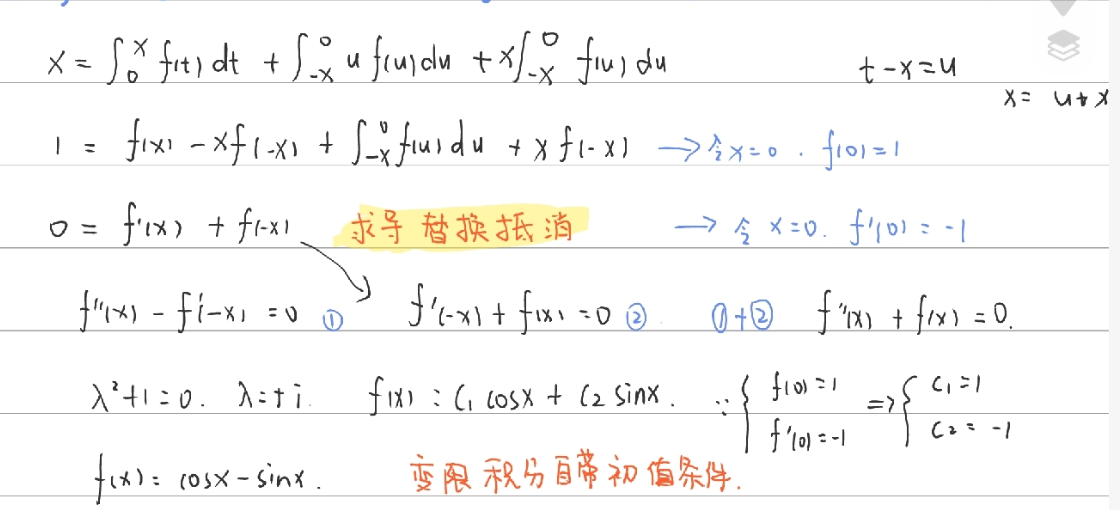 x = ∫₀ˣ f(t) dt + ∫₋ₓ⁰ u f(u) du + x∫₋ₓ⁰ f(u) du t-x=u
x= u+x
1 = f(x) - xf(-x) + ∫₋ₓ⁰ f(u) du + x f(-x) → 令x=0. f(0)=1
0 = f'(x) + f(-x) 求导替换抵消 → 令 x=0. f'(0) = -1
f''(x) - f'(-x) = 0 ① f'(-x) + f(x) = 0 ② ①+② f''(x) + f(x) = 0.
λ²+1=0. λ=±i. f(x) = C₁ cosx + C₂ sinx. ∵ { f(0)=1 f'(0)=-1 => { C₁=1 C₂=-1
f(x) = cosx - sinx. 变限积分自带初值条件.